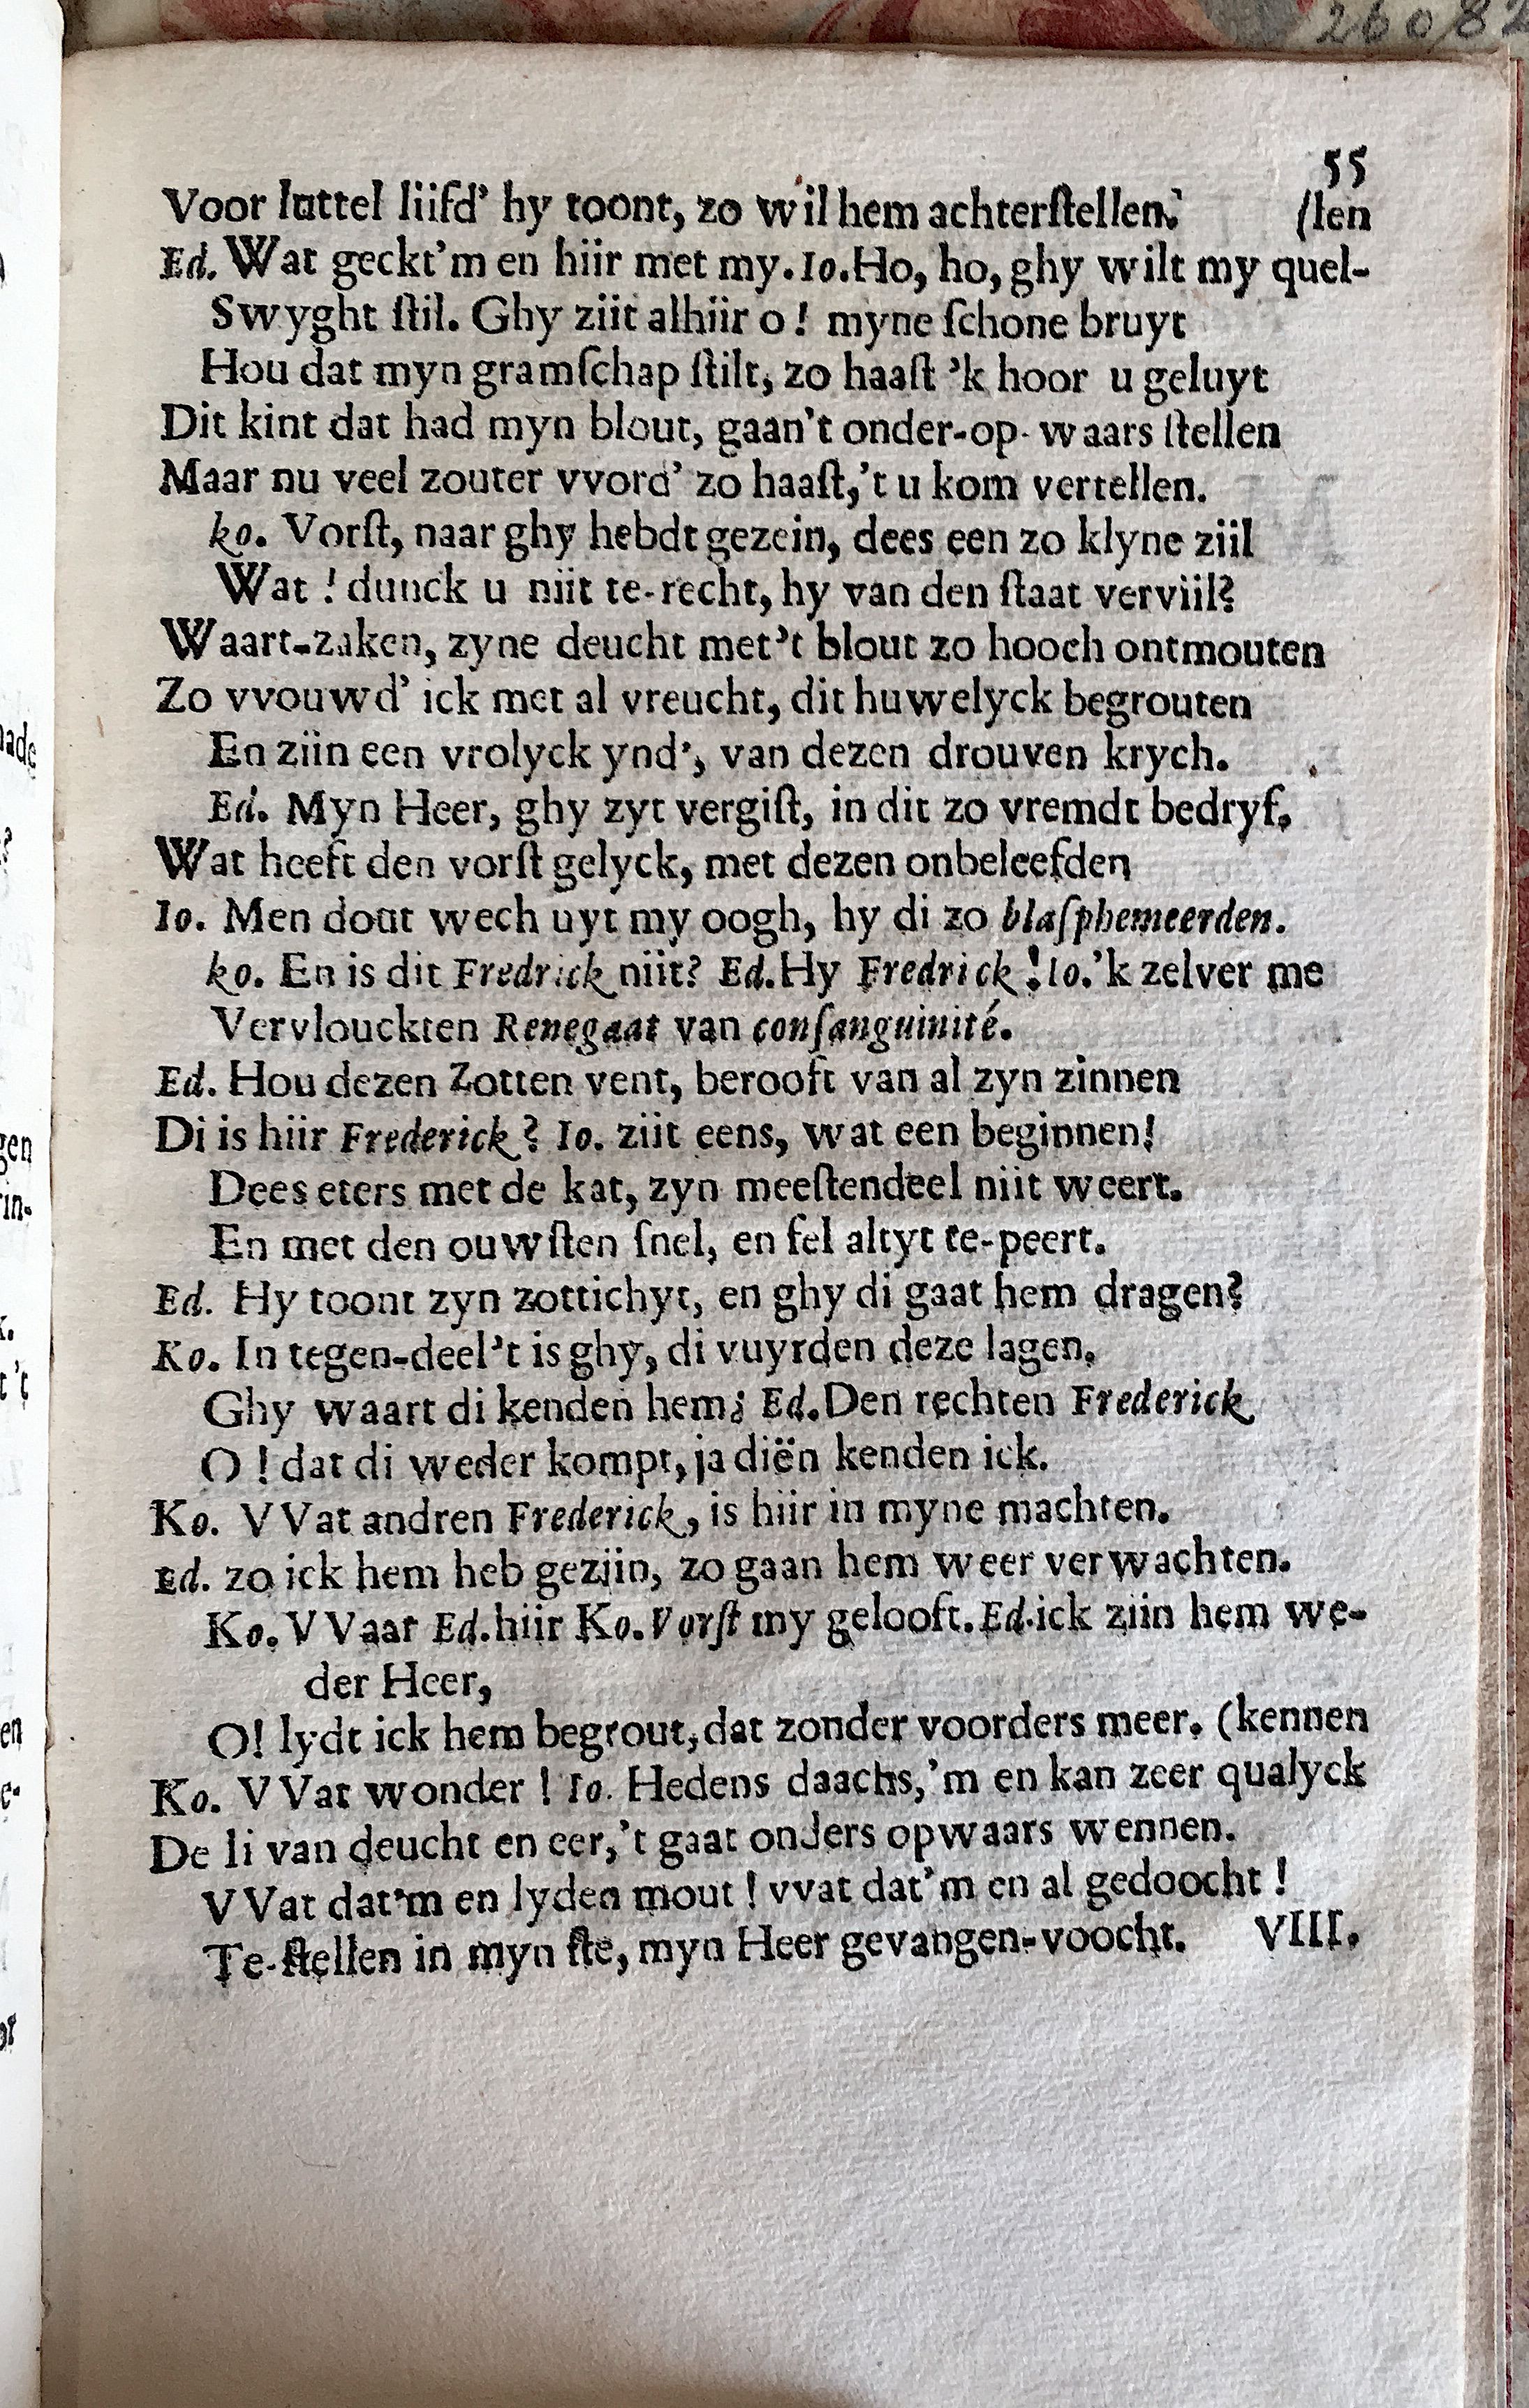 26082
55
Voor luttel liifd' hy toont, zo wil hem achterſtellen. (len
Ed. Wat geckt'm en hiir met my. Io. Ho, ho, ghy wilt my quel-
Swyght ſtil. Ghy ziit alhiir o! myne ſchone bruyt
Hou dat myn gramſchap ſtilt, zo haaſt 'k hoor u geluyt
Dit kint dat had myn blout, gaan't onder-op-waars ſtellen
Maar nu veel zouter vvord' zo haaſt,'t u kom vertellen.
ko. Vorſt, naar ghy hebdt gezein, dees een zo klyne ziil
Wat! dunck u niit te-recht, hy van den ſtaat verviil?
Waart-zaken, zyne deucht met't blout zo hooch ontmouten
Zo vvouwd' ick met al vreucht, dit huwelyck begrouten
En ziin een vrolyck ynd', van dezen drouven krych.
Ed. Myn Heer, ghy zyt vergiſt, in dit zo vremdt bedryf.
Wat heeft den vorſt gelyck, met dezen onbeleefden
Io. Men dout wech uyt my oogh, hy di zo blaſphemeerden.
ko. En is dit Fredrick niit? Ed. Hy Fredrick! Io. 'k zelver me
Vervlouckten Renegaat van conſanguinité.
Ed. Hou dezen Zotten vent, berooft van al zyn zinnen
Di is hiir Frederick? Io. ziit eens, wat een beginnen!
Dees eters met de kat, zyn meeſtendeel niit weert.
En met den ouwſten ſnel, en fel altyt te-peert.
Ed. Hy toont zyn zottichyt, en ghy di gaat hem dragen?
Ko. In tegen-deel't is ghy, di vuyrden deze lagen.
Ghy waart di kenden hem; Ed. Den rechten Frederick
O! dat di weder kompt, ja diën kenden ick.
Ko. VVat andren Frederick, is hiir in myne machten.
Ed. zo ick hem heb geziin, zo gaan hem weer verwachten.
Ko. VVaar Ed. hiir Ko. Vorſt my gelooft. Ed. ick ziin hem we-
der Heer,
O! lydt ick hem begrout, dat zonder voorders meer. (kennen
Ko. VVat wonder! Io. Hedens daachs,'m en kan zeer qualyck
De li van deucht en eer,'t gaat onders opwaars wennen.
VVat dat'm en lyden mout! vvat dat'm en al gedoocht!
Te-ſtellen in myn ſte, myn Heer gevangen-voocht. VIII.